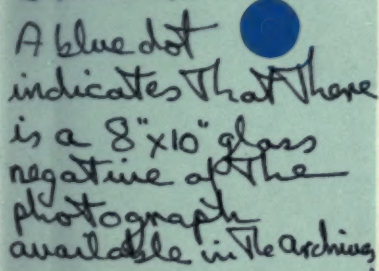 A blue dot
indicates that there
is a 8"x10" glass
negative of the
photograph
available in the archives